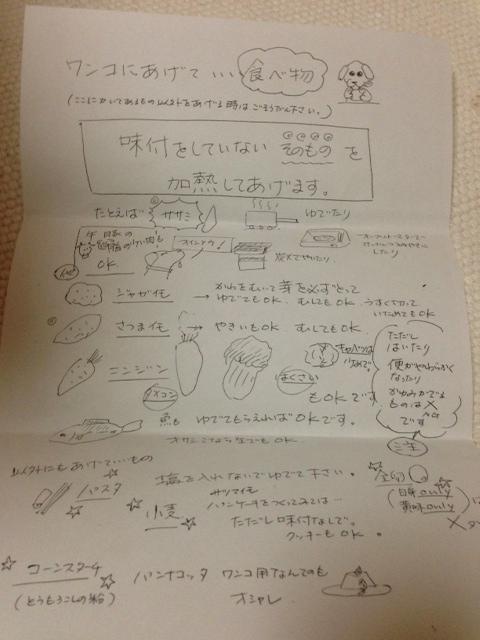 ワンコにあげていい 食べ物
(ここにかいてあるもの以外をあげる時はごそうだん下さい。)
味付をしていない そのもの を
加熱してあげます。
たとえば ササミ ゆでたり
牛
OK
炭火でやいたり
オーブントースターで
したり
ジャガイモ → かわをむいて芽を必ずとって
ゆでてもOK. むしてもOK. うすく切って
いためてもOK
さつまイモ → やきいもOK むしてもOK.
ニンジン
ダイコン
はくさい
キャベツは
もOKです
ただし
はいたり
便がやわらかく
なったり
する
ものは×
です
注
魚も ゆでてもらえればOKです。
OK.
以外にもあげていいもの
パスタ 塩を入れないでゆでて下さい。
小麦
パンケーキをつくってみては…
ただし味付なしで。
クッキーもOK.
全卵
(白身only
黄味only)
は
×
コーンスターチ パンナコッタ ワンコ用なんてのも
(とうもろこしの粉) オシャレ.